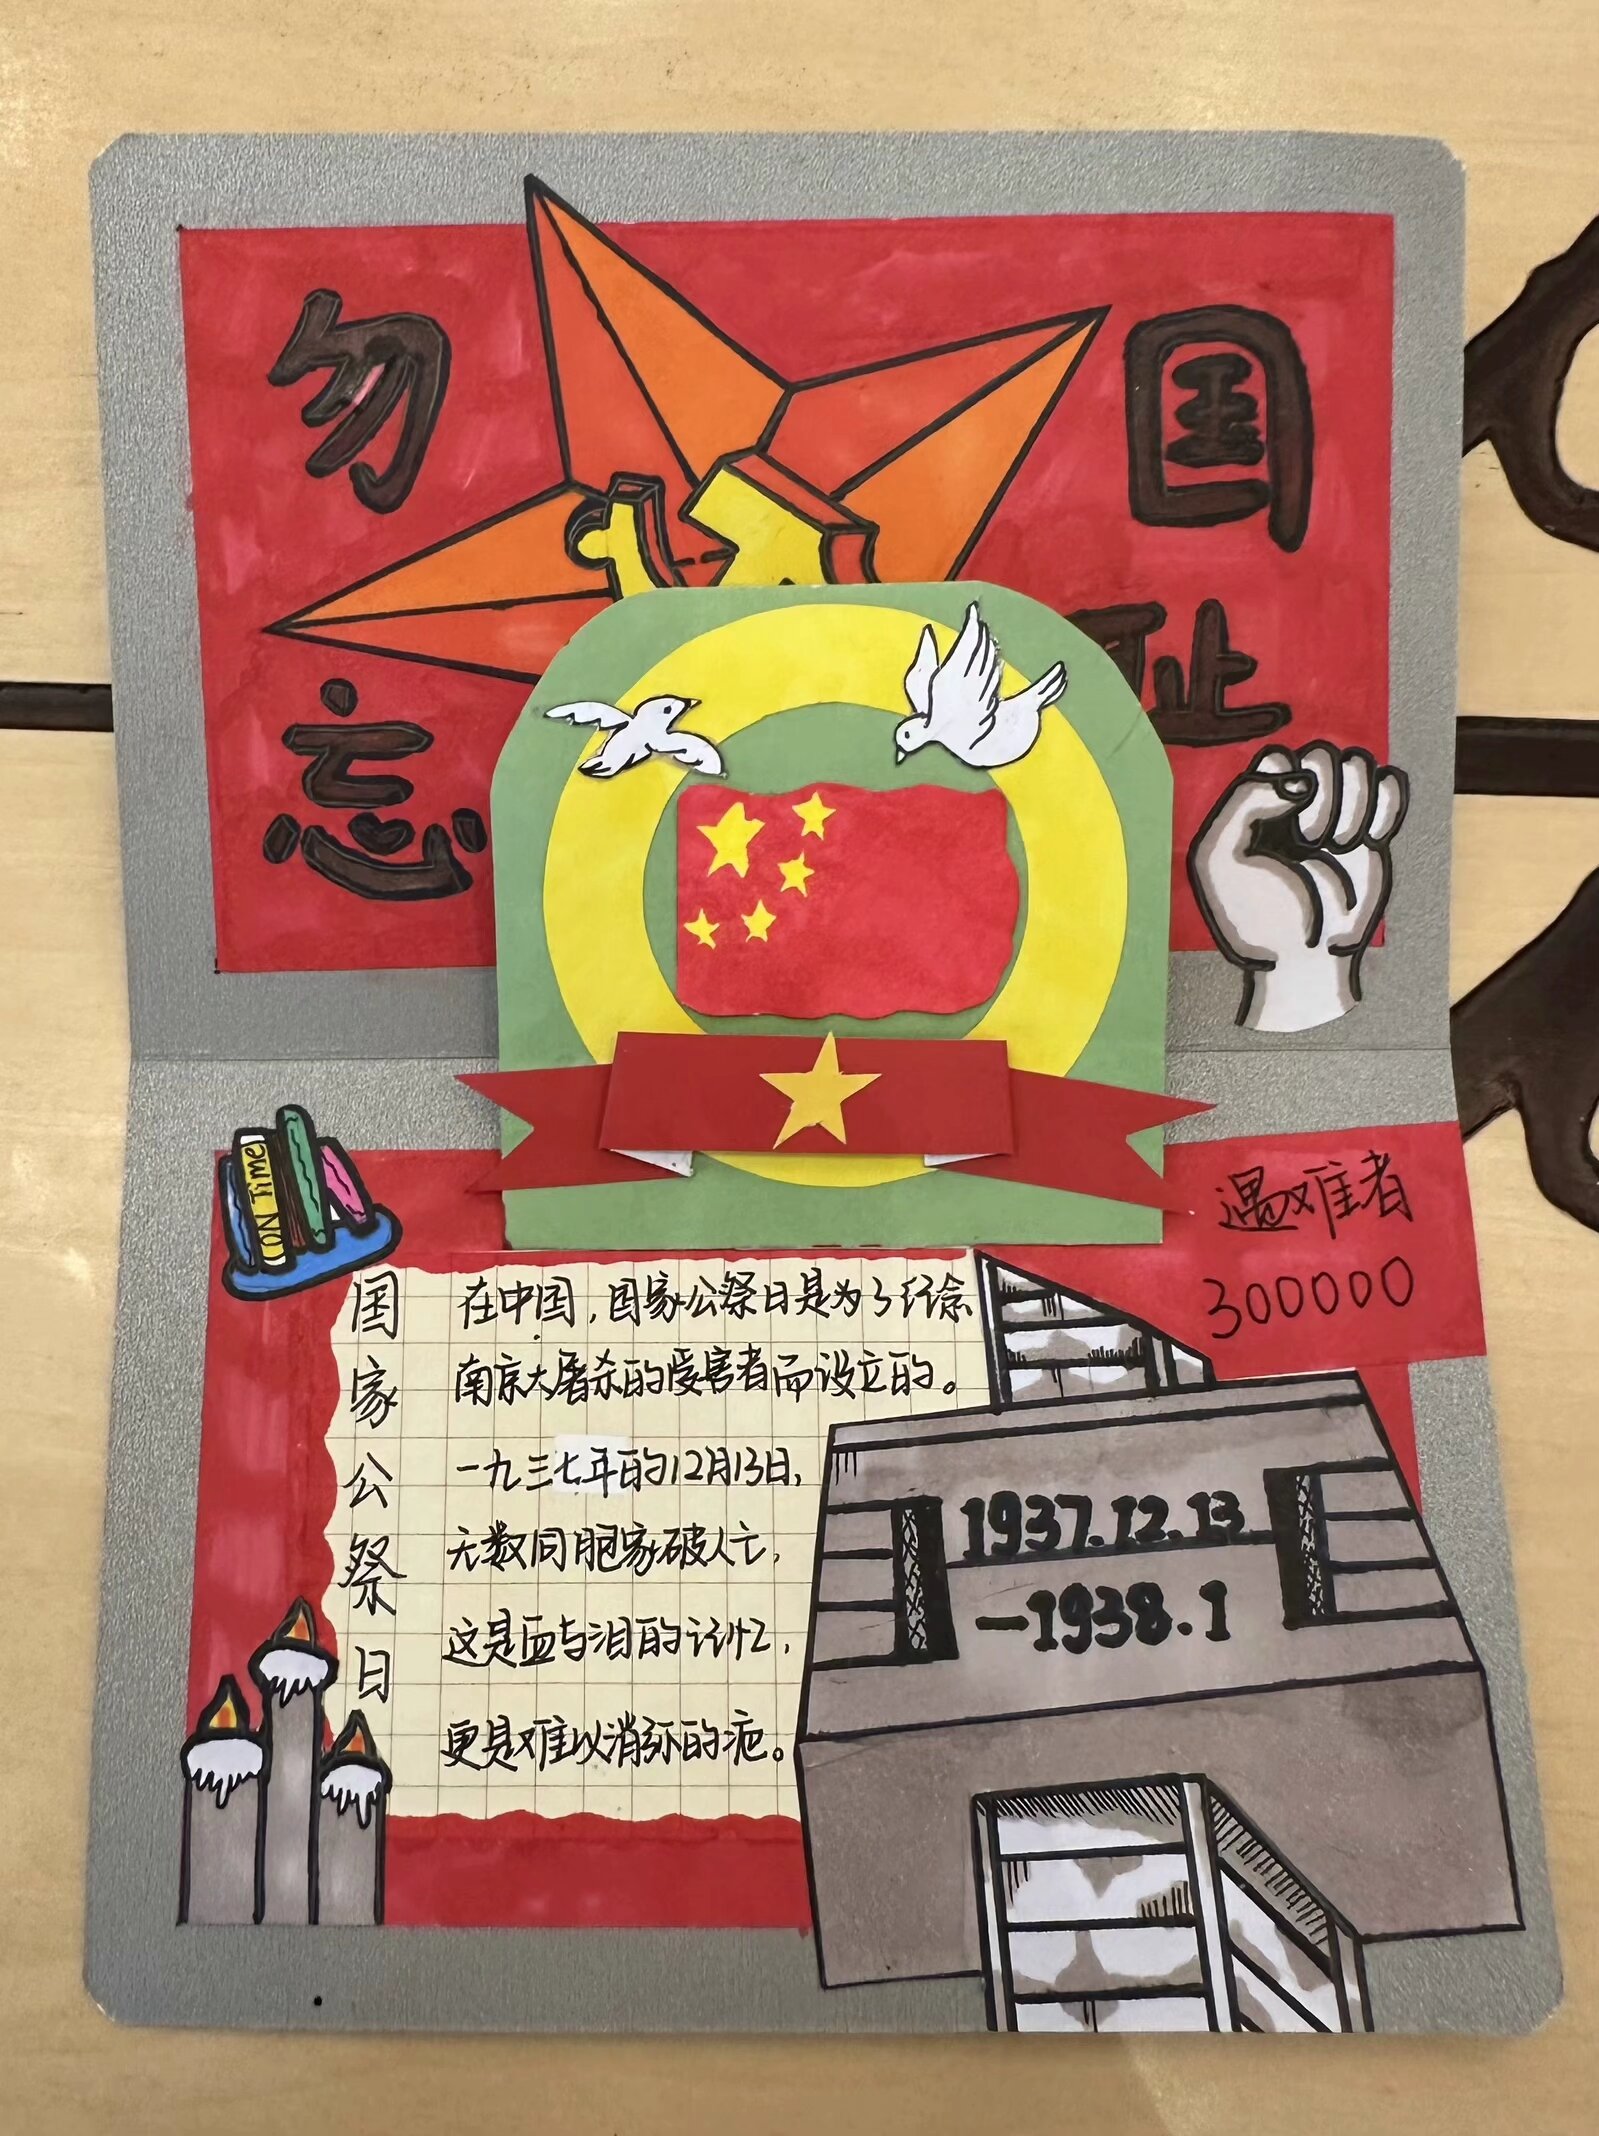 勿忘
国耻
ON Time
遇难者
300000
国家公祭日
在中国,国家公祭日是为了纪念
南京大屠杀的受害者而设立的。
一九三七年的12月13日,
无数同胞家破人亡,
这是血与泪的记忆,
更是难以消弥的疤。
1937.12.13
-1938.1